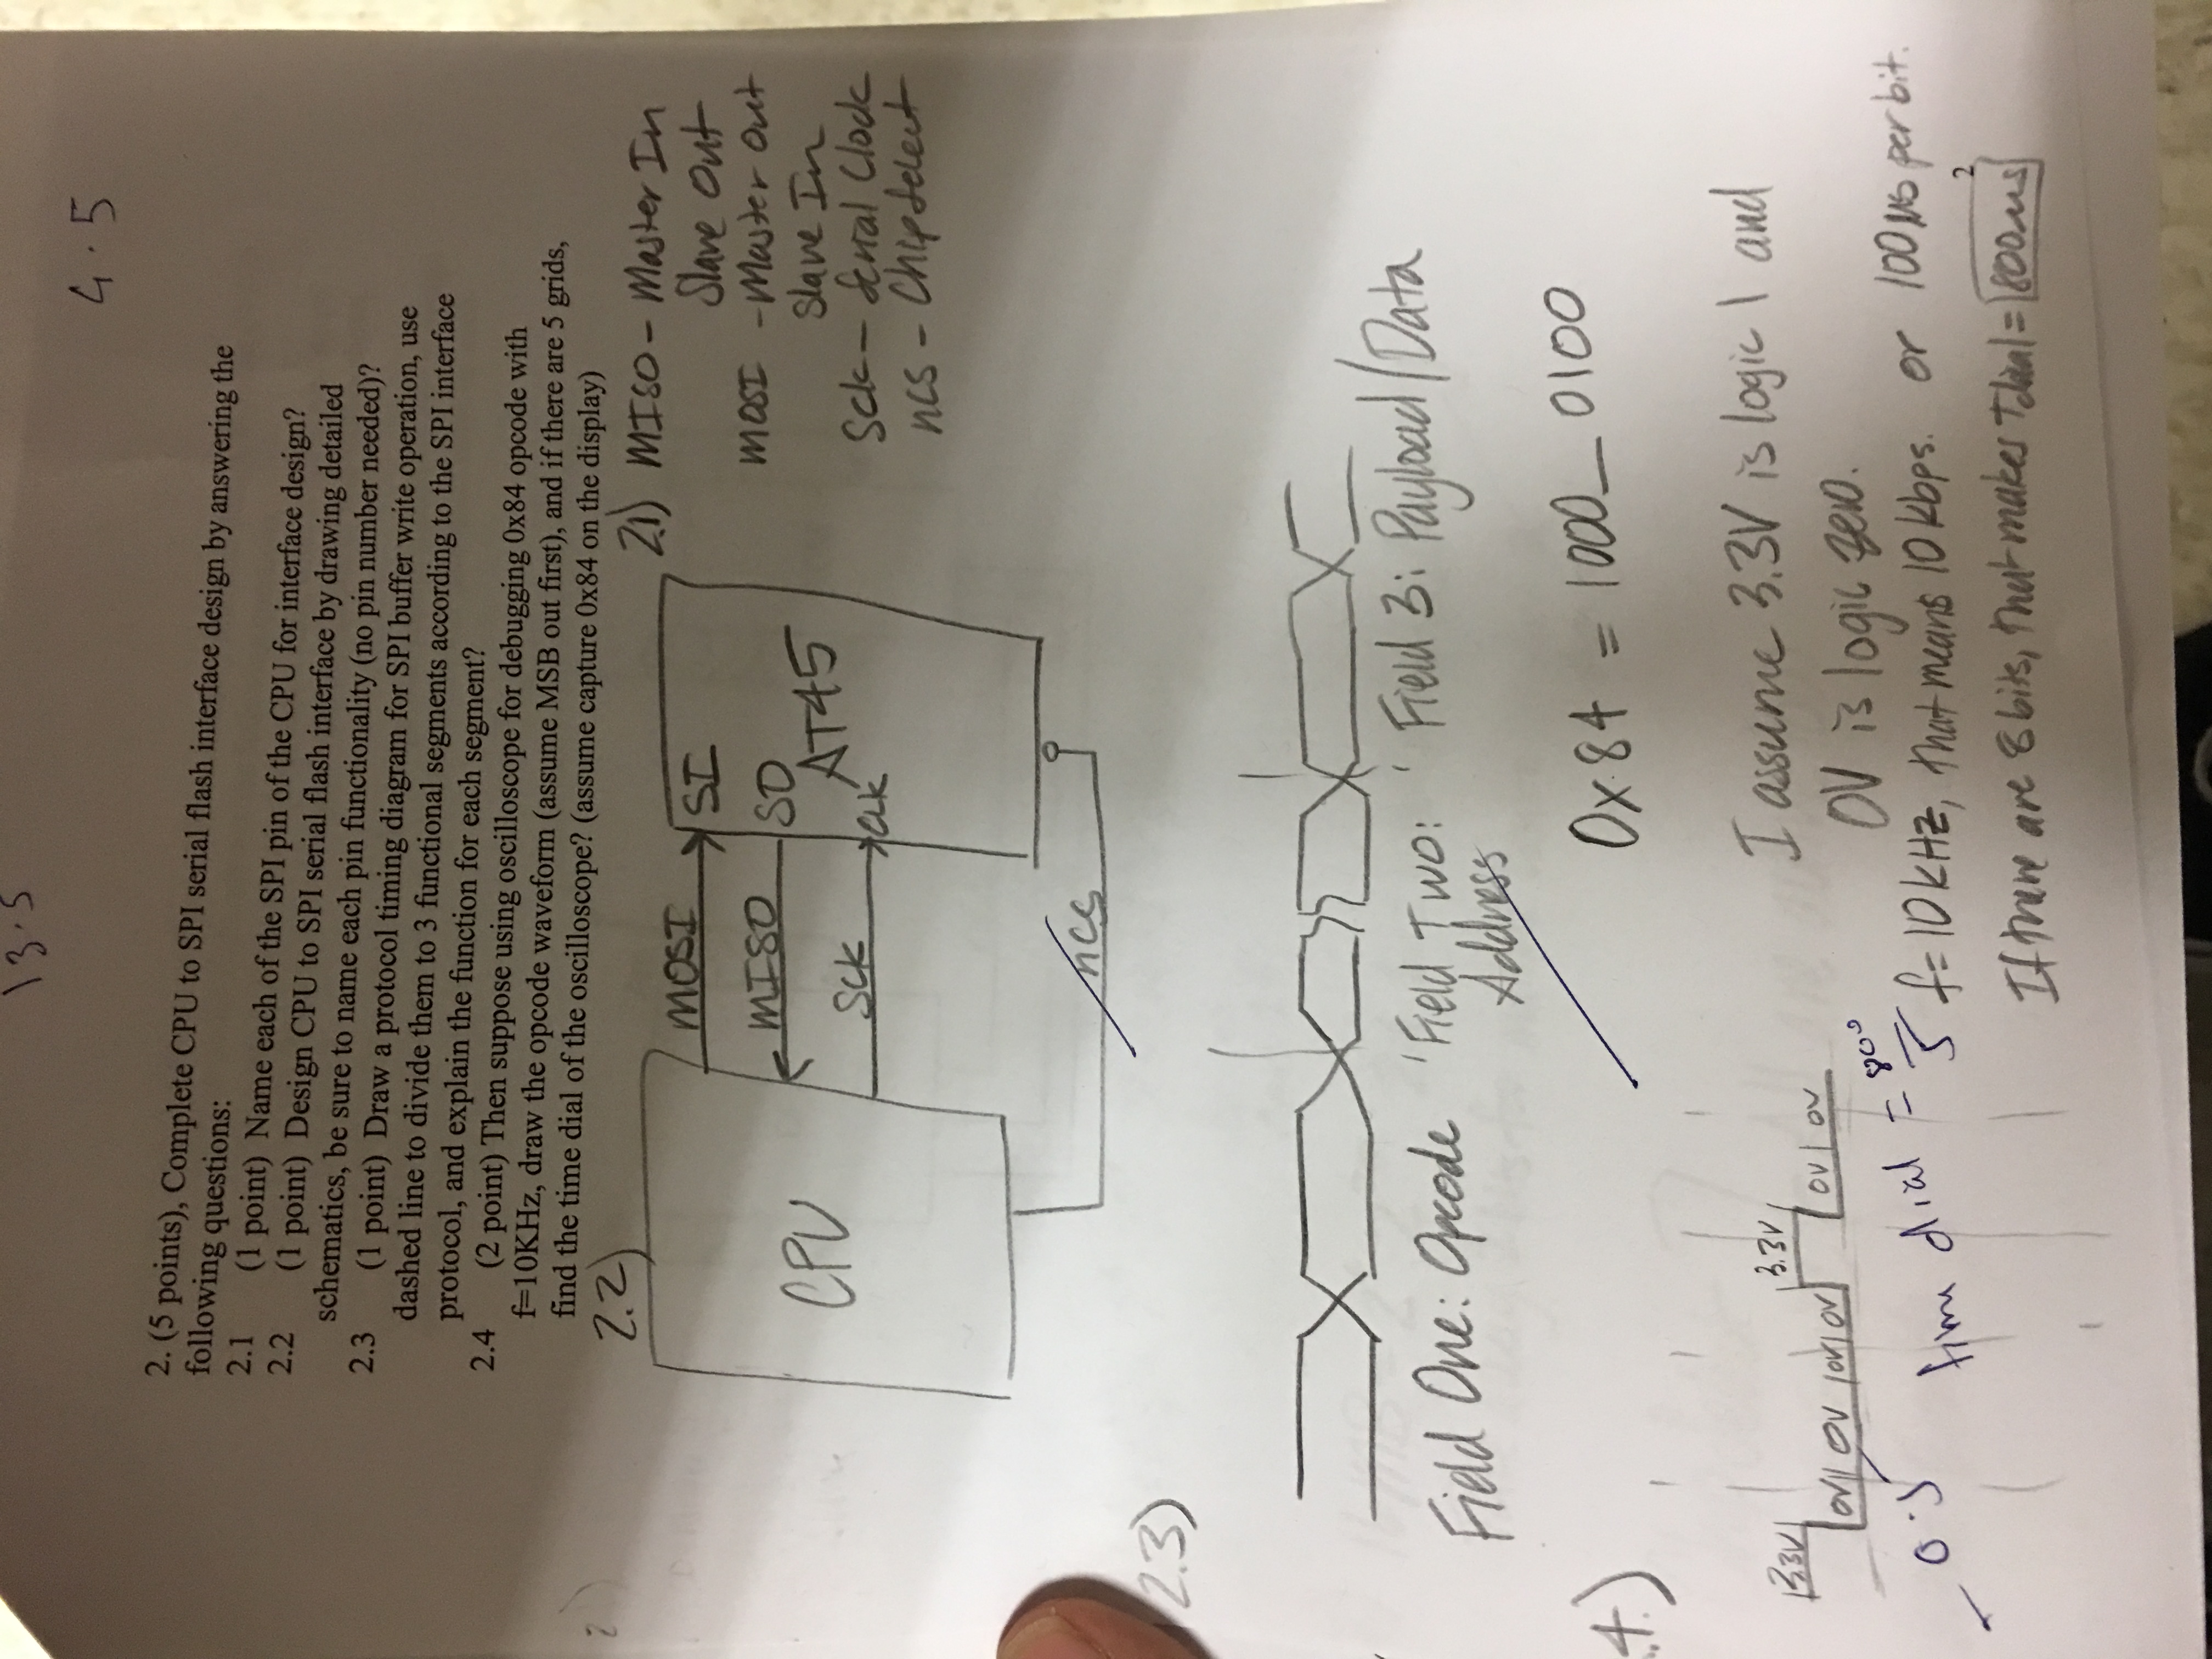 13.5
4.5
2. (5 points), Complete CPU to SPI serial flash interface design by answering the
following questions:
2.1 (1 point) Name each of the SPI pin of the CPU for interface design?
2.2 (1 point) Design CPU to SPI serial flash interface by drawing detailed
schematics, be sure to name each pin functionality (no pin number needed)?
2.3 (1 point) Draw a protocol timing diagram for SPI buffer write operation, use
dashed line to divide them to 3 functional segments according to the SPI interface
protocol, and explain the function for each segment?
2.4 (2 point) Then suppose using oscilloscope for debugging 0x84 opcode with
f=10KHz, draw the opcode waveform (assume MSB out first), and if there are 5 grids,
find the time dial of the oscilloscope? (assume capture 0x84 on the display)
2.2)
2.1) MISO - Master In
Slave Out
MOSI - Master Out
Slave In
Sck - Serial Clock
nCS - Chip Select
MOSI
SI
MISO
SO
CPU
AT45
Sck
clk
nCS
2.3)
Field One: Opcode
Field Two:
Address
Field 3: Payload/Data
.4)
0x84 = 1000_0100
3.3V
0V 0V 0V 0V
3.3V
0V 0V
I assume 3.3V is logic 1 and
0V is logic zero.
- 0.5
time dial = 800
5
f=10kHz, that means 10 kbps. or 100 us per bit.
If there are 8 bits, that makes Tdial = 800us
2